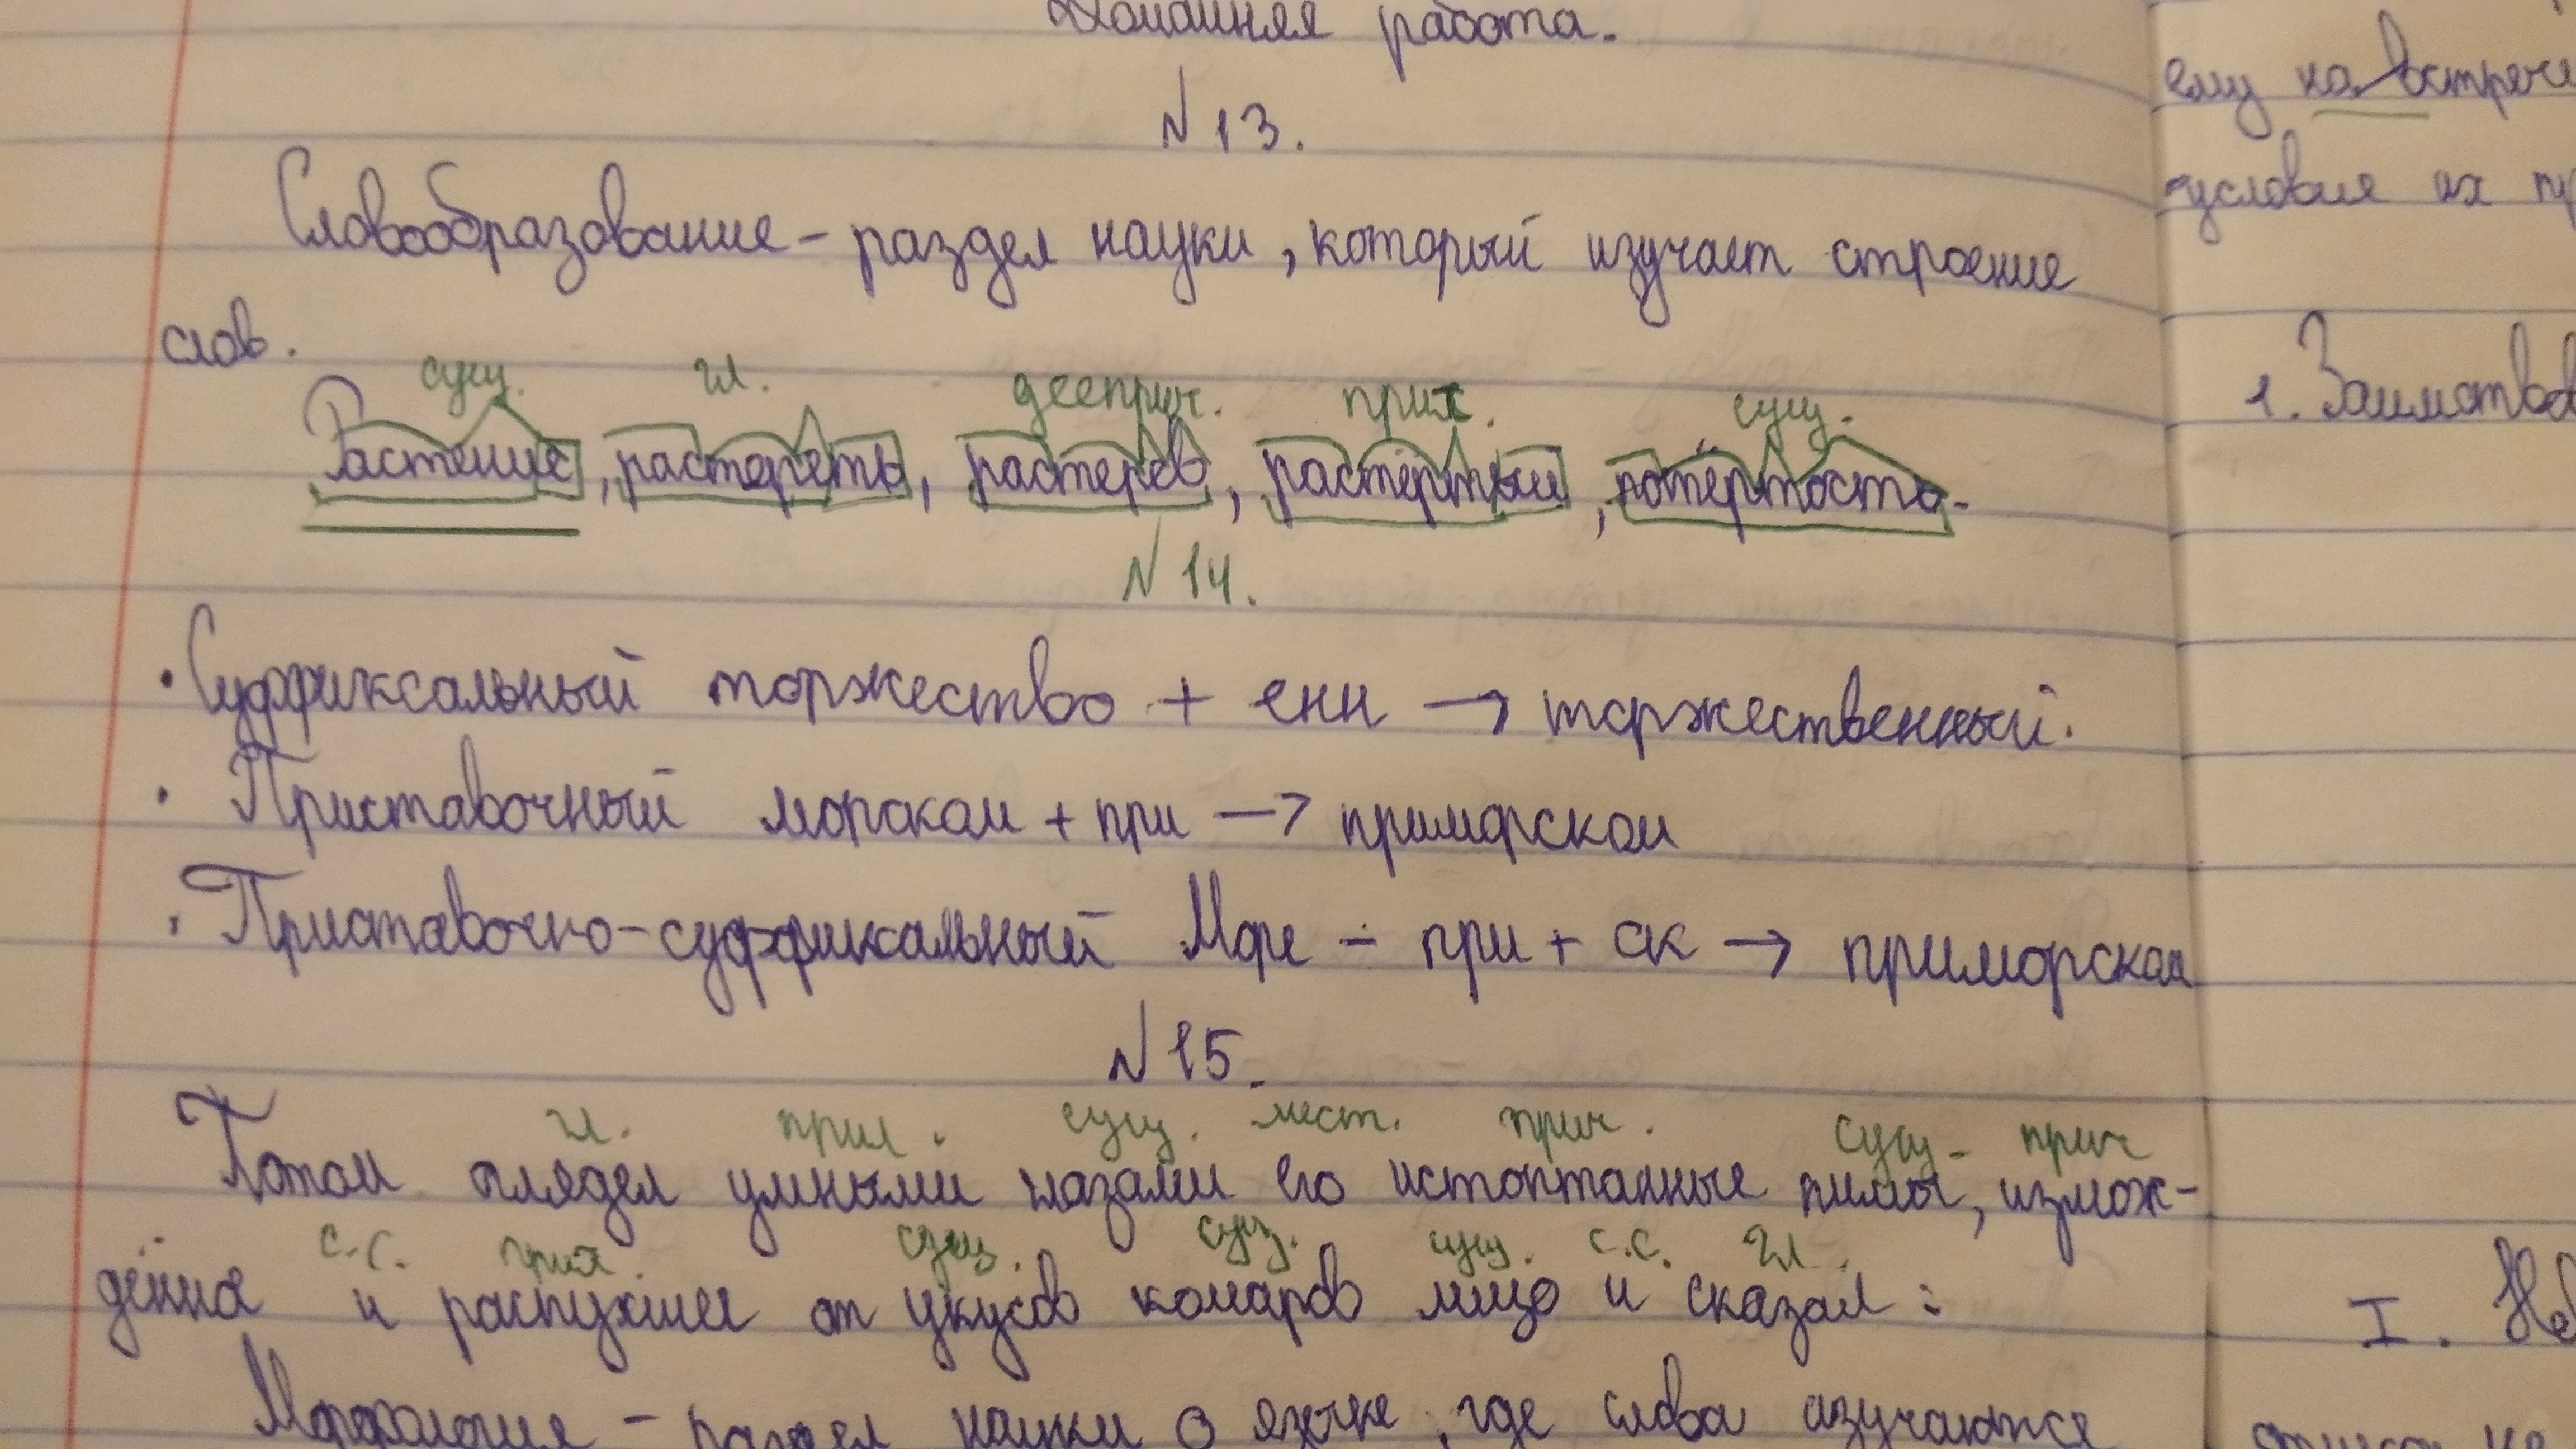 Домашняя работа.
№ 13.
Словообразование – раздел науки, который изучает строение
слов.
сущ. гл. дееприч. прил. сущ.
Растение, растереть, растерев, растёртый, потёртость.
№ 14.
· Суффиксальный торжество + енн → торжественный.
· Приставочный морской + при → приморской
· Приставочно-суффикальный Море – при + ск → приморской
№ 15.
гл. прил. сущ. мест. прич. сущ. прич
Потом оглядел умными глазами его истоптанные пимы, измож-
с.с. прил. сущ. сущ. сущ. с.с. гл.
дённое и распухшее от укусов комаров лицо и сказал:
Морфология – раздел науки о языке, где слова изучаются
ему на встрече
условия их
1. Заимствов
I.